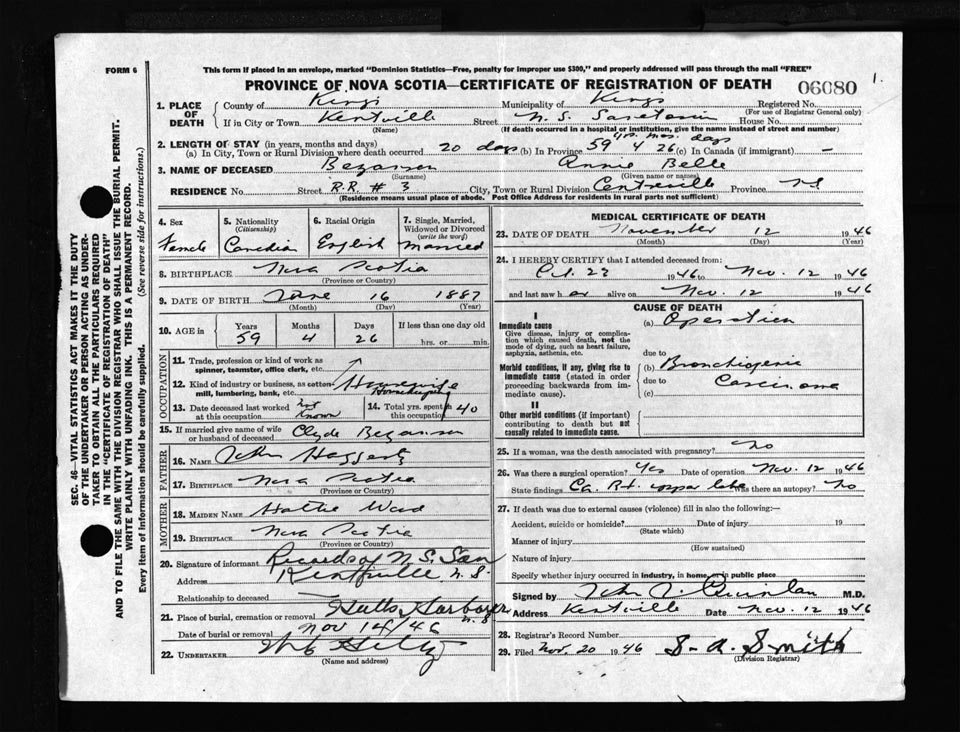 FORM 6
This form if placed in an envelope, marked "Dominion Statistics—Free, penalty for improper use $300," and properly addressed will pass through the mail "FREE"
PROVINCE OF NOVA SCOTIA—CERTIFICATE OF REGISTRATION OF DEATH
06080
1.
1. PLACE OF DEATH
County of Kings Municipality of Kings Registered No.
(For use of Registrar General only)
If in City or Town Kentville Street N. S. Sanatorium House No.
(Name) (If death occurred in a hospital or institution, give the name instead of street and number)
yrs. mos. days
2. LENGTH OF STAY (in years, months and days)
(a) In City, Town or Rural Division where death occurred 20 days (b) In Province 59 4 26 (c) In Canada (if immigrant) —
3. NAME OF DECEASED Bezanson Annie Belle
(Surname) (Given name or names)
RESIDENCE No. Street R.R. # 3 City, Town or Rural Division Centreville Province N.S
(Residence means usual place of abode. Post Office Address for residents in rural parts not sufficient)
4. Sex
Female
5. Nationality
(Citizenship)
Canadian
6. Racial Origin
English
7. Single, Married, Widowed or Divorced
(write the word)
Married
8. BIRTHPLACE Nova Scotia
(Province or Country)
9. DATE OF BIRTH June 16 1887
(Month) (Day) (Year)
10. AGE in
Years Months Days If less than one day old
59 4 26 hrs. or min.
OCCUPATION
11. Trade, profession or kind of work as spinner, teamster, office clerk, etc.
12. Kind of industry or business, as cotton mill, lumbering, bank, etc.
Housewife
Housekeeping
13. Date deceased last worked at this occupation not known
14. Total yrs. spent in this occupation 40
15. If married give name of wife or husband of deceased Clyde Bezanson
FATHER
16. NAME John Haggerty
17. BIRTHPLACE Nova Scotia
(Province or Country)
MOTHER
18. MAIDEN NAME Hattie Ward
19. BIRTHPLACE Nova Scotia
(Province or Country)
20. Signature of informant Records of N. S. San
Address Kentville N. S
Relationship to deceased
21. Place of burial, cremation or removal Halls Harbour N. S
Date of burial or removal Nov 14/46
22. UNDERTAKER
(Name and address)
MEDICAL CERTIFICATE OF DEATH
23. DATE OF DEATH November 12 1946
(Month) (Day) (Year)
24. I HEREBY CERTIFY that I attended deceased from:
Oct. 23 1946 to Nov. 12 1946
and last saw her alive on Nov. 12 1946
CAUSE OF DEATH
I
Immediate cause
Give disease, injury or complication which caused death, not the mode of dying, such as heart failure, asphyxia, asthenia, etc.
(a) Operation
due to
Morbid conditions, if any, giving rise to immediate cause (stated in order proceeding backwards from immediate cause).
(b) Bronchiogenic
due to Carcinoma
(c)
II
Other morbid conditions (if important) contributing to death but not causally related to immediate cause.
25. If a woman, was the death associated with pregnancy? No
26. Was there a surgical operation? Yes Date of operation Nov. 12 1946
State findings Ca. Rt. upper lobe Was there an autopsy? No
27. If death was due to external causes (violence) fill in also the following:—
Accident, suicide or homicide? Date of injury 19
(State which)
Manner of injury
(How sustained)
Nature of injury
Specify whether injury occurred in industry, in home, or in public place
Signed by John J. Quinlan M.D.
Address Kentville Date Nov. 12 1946
28. Registrar's Record Number
29. Filed Nov. 20 1946 S. A. Smith
(Division Registrar)
SEC. 46—VITAL STATISTICS ACT MAKES IT THE DUTY
OF THE UNDERTAKER OR PERSON ACTING AS UNDERTAKER
TO OBTAIN ALL THE PARTICULARS REQUIRED
IN THE "CERTIFICATE OF REGISTRATION OF DEATH"
AND TO FILE THE SAME WITH THE DIVISION REGISTRAR WHO SHALL ISSUE THE BURIAL PERMIT.
WRITE PLAINLY WITH UNFADING INK. THIS IS A PERMANENT RECORD.
Every item of information should be carefully supplied. (See reverse side for instructions.)